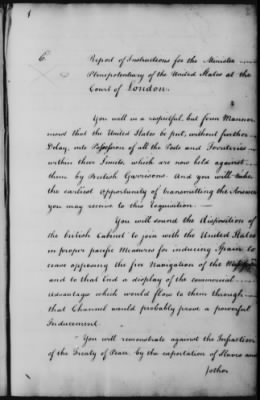 6.
Report of Instructions for the Minister
Plenipotentiary of the United States at the
Court of London.
You will in a respectful, but firm Manner,
insist that the United States be put, without further
Delay, into Possession of all the Posts and Territories
within their Limits, which are now held against
them by British Garrisons. And you will take
the earliest opportunity of transmitting the Answer
you may receive to this Requisition —
You will sound the disposition of
the british Cabinet to join with the United States
in proper pacific Measures for inducing Spain to
cease opposing the free Navigation of the
and to that End a display of the commercial
advantages which would flow to them through
that Channel would probably prove a powerful
Inducement
You will remonstrate against the Infraction
of the Treaty of Peace by the exportation of Slaves and
other